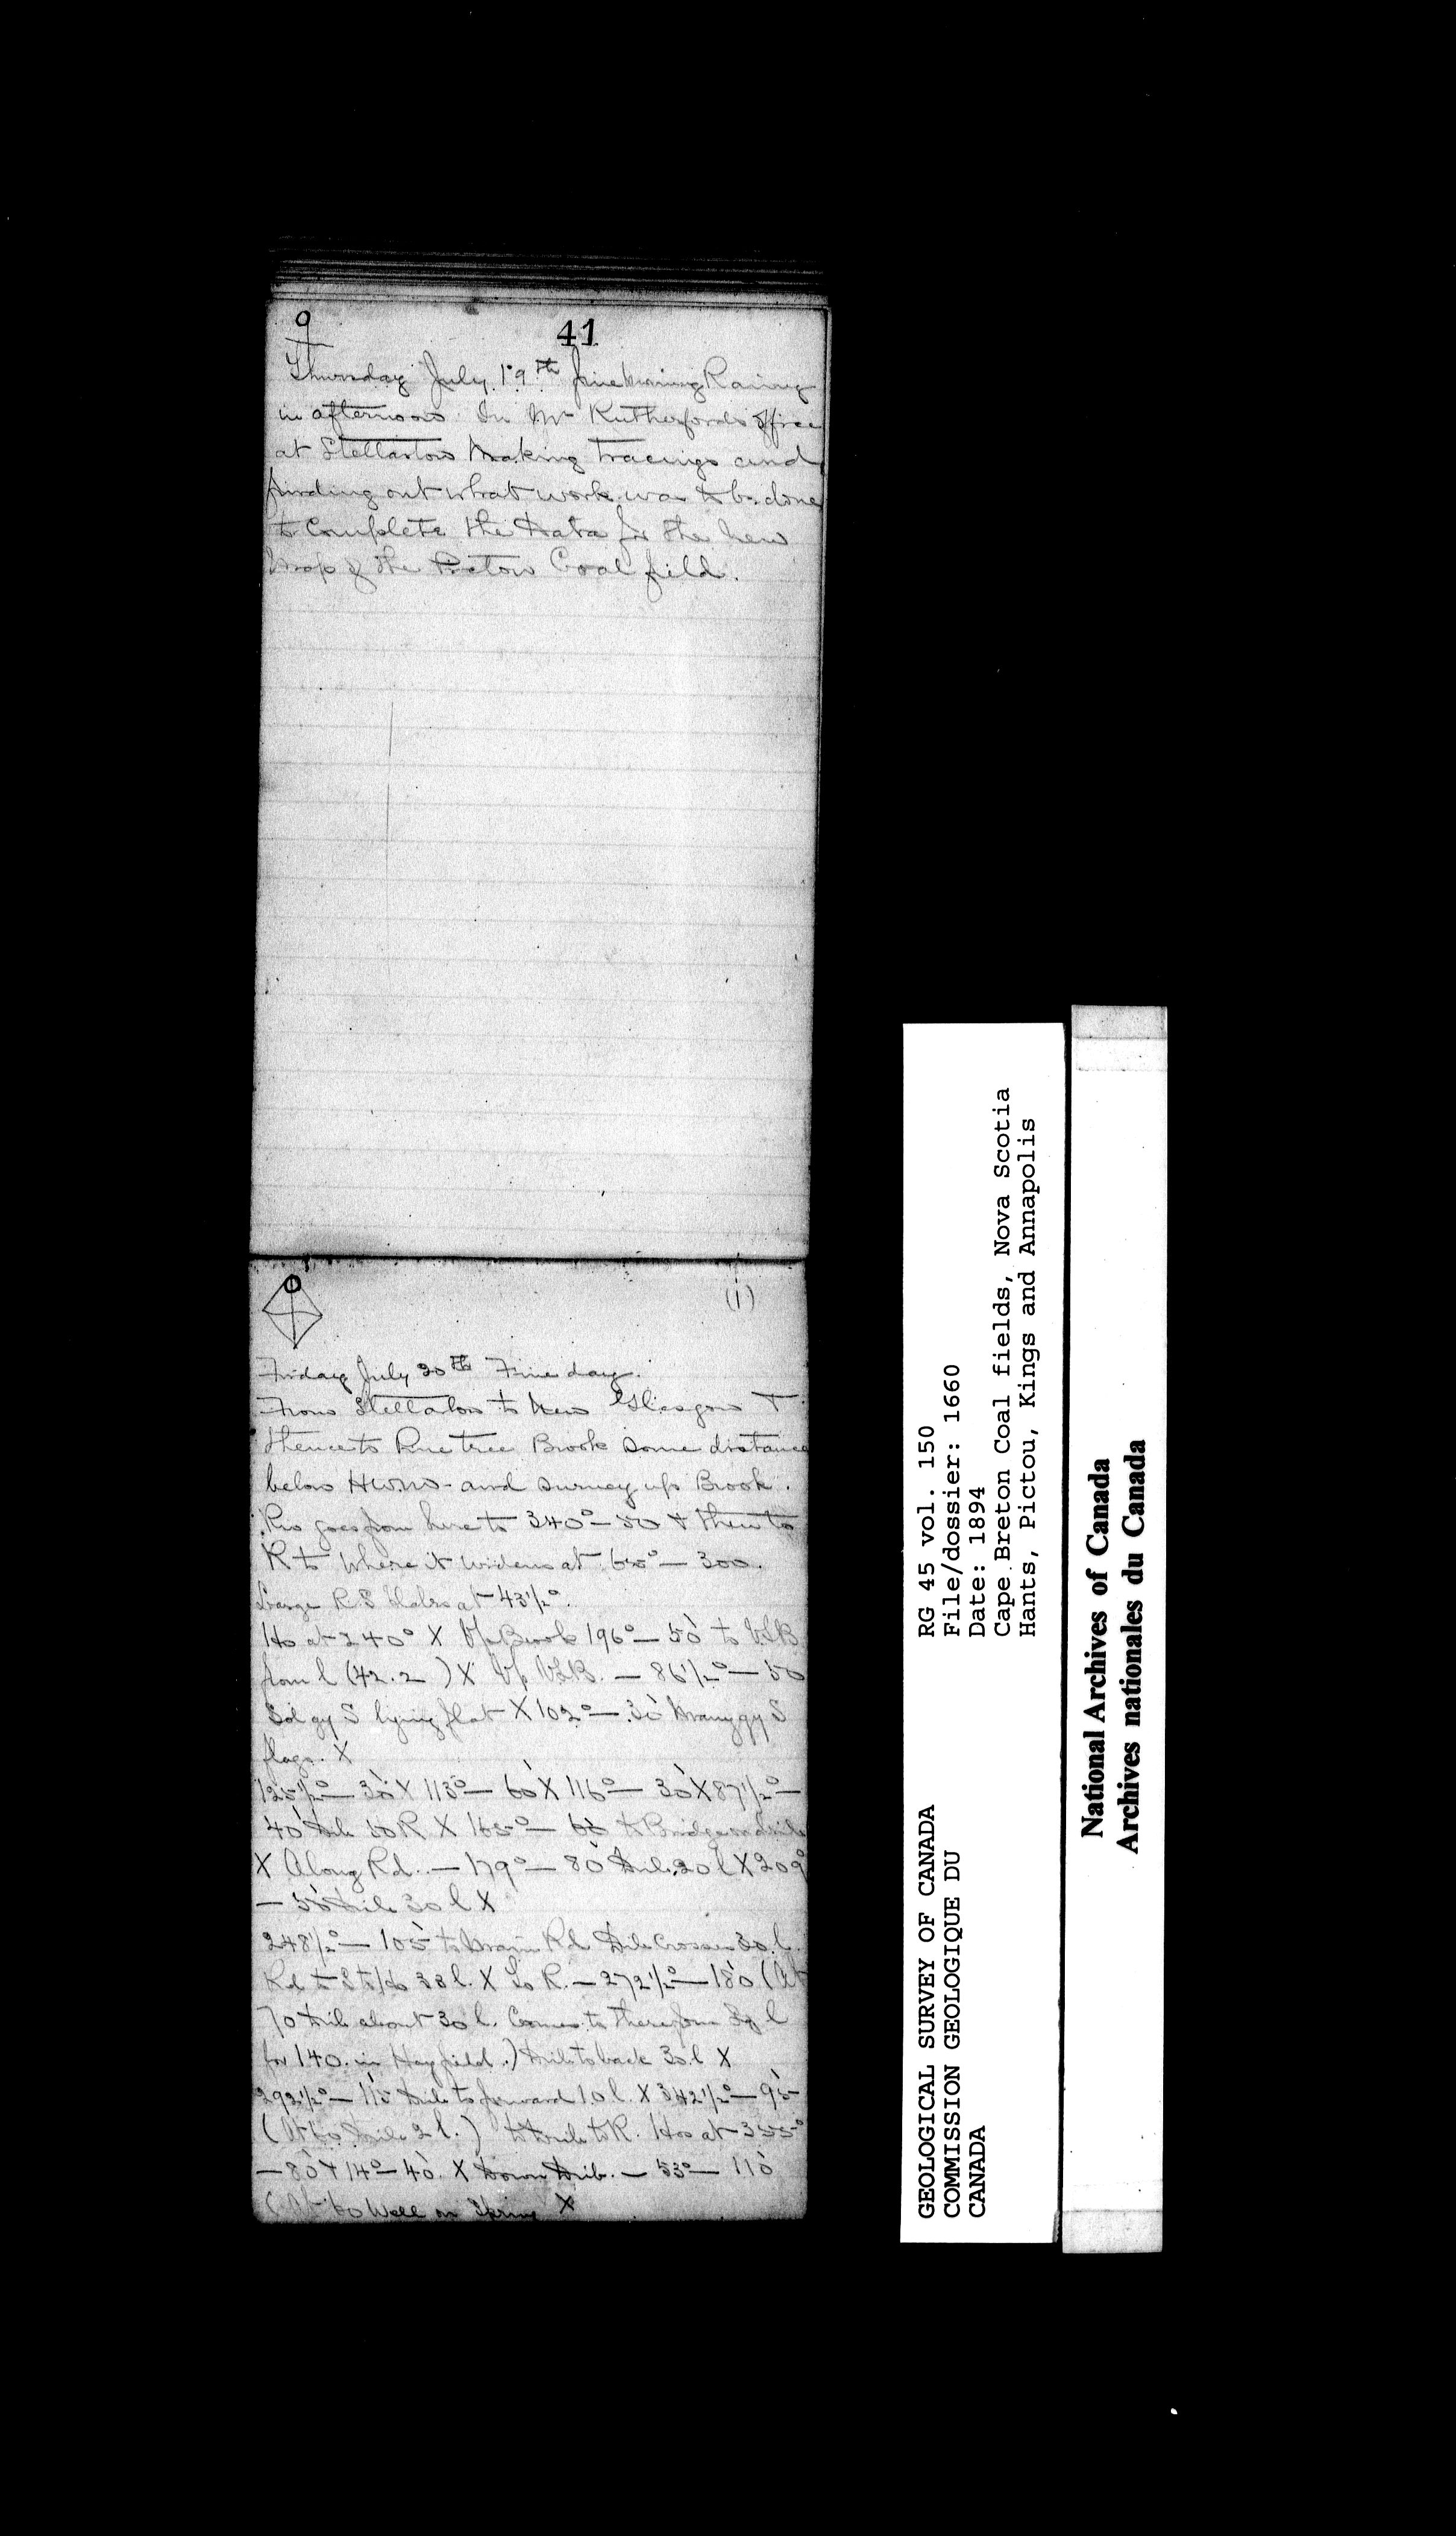 9
41
Thursday July 19th fine morning Rainy
in afternoon In Mr Rutherfords office
at Stellarton Making Tracings and
finding out what work was to be done
to Complete the Data for the new
Map of the Pictou Coal field.
(1)
Friday July 20th Fine day.
From Stellarton to New Glasgow &
thence to Pine tree Brook some distance
below H.W.M. and survey up Brook.
Riv goes from here to 340° — 50 & then to
R to where it widens at 65° — 300.
Large R S blabs at 43½°.
Ho at 240° X Up Brook 196° — 50 to VLB
from l (42.2) X Up VLB. — 86½° — 50
Sol gy S lying flat X 102° — 30 gy S
flags. X
125½° — 30 X 113° — 60 X 116° — 30 X 87½° —
40 50 R X 165° — 60 to Bridge
X Along Rd. — 179° — 80 20 l X 209°
— 50 30 l X
248½° — 105 to Main Rd Crosses 30 l.
Rd to 33 l. X To R. — 272½° — 180 (At
70 about 30 l. Comes to there from l
for 140 in Hayfield.) to back 30 l X
292½° — 115 to forward 10 l. X 342½° — 95
(At 60 2 l.) to R. Ho at 355°
— 80 & 14° — 40. X Down — 53° — 110
(At 60 Well or Spring X
GEOLOGICAL SURVEY OF CANADA
COMMISSION GEOLOGIQUE DU
CANADA
RG 45 vol. 150
File/dossier: 1660
Date: 1894
Cape Breton Coal fields, Nova Scotia
Hants, Pictou, Kings and Annapolis
National Archives of Canada
Archives nationales du Canada